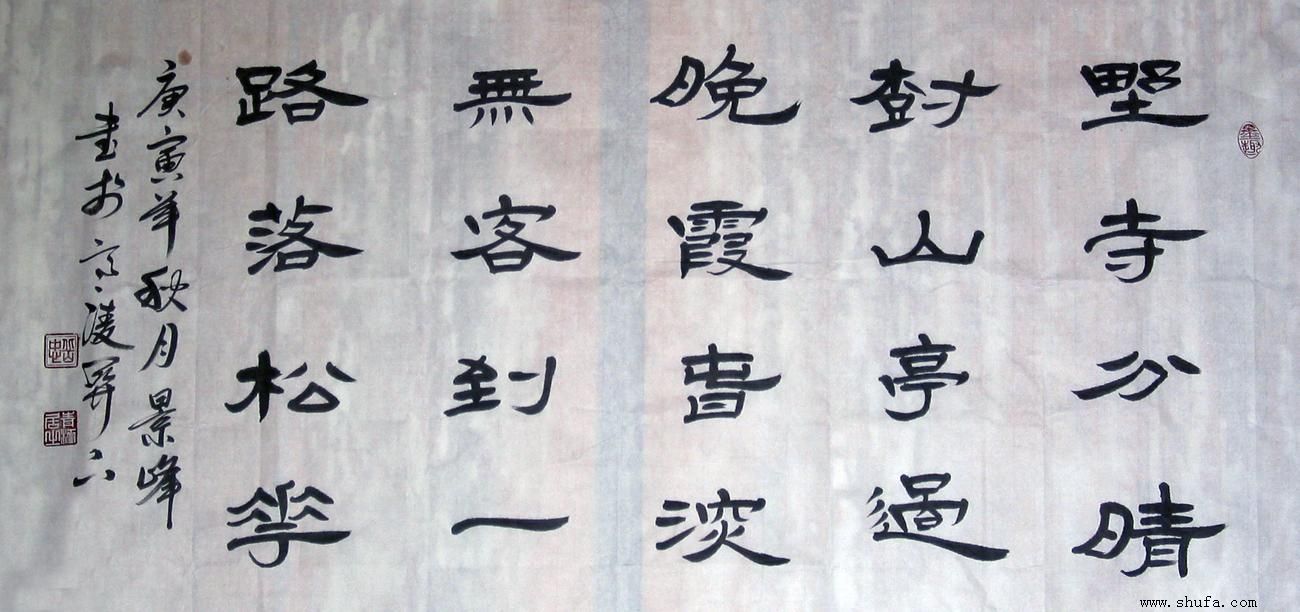 野寺分晴
樹山亭過
晚霞春深
無客到一
路落松花
庚寅年秋月景峰
書於高陵
www.shufa.com